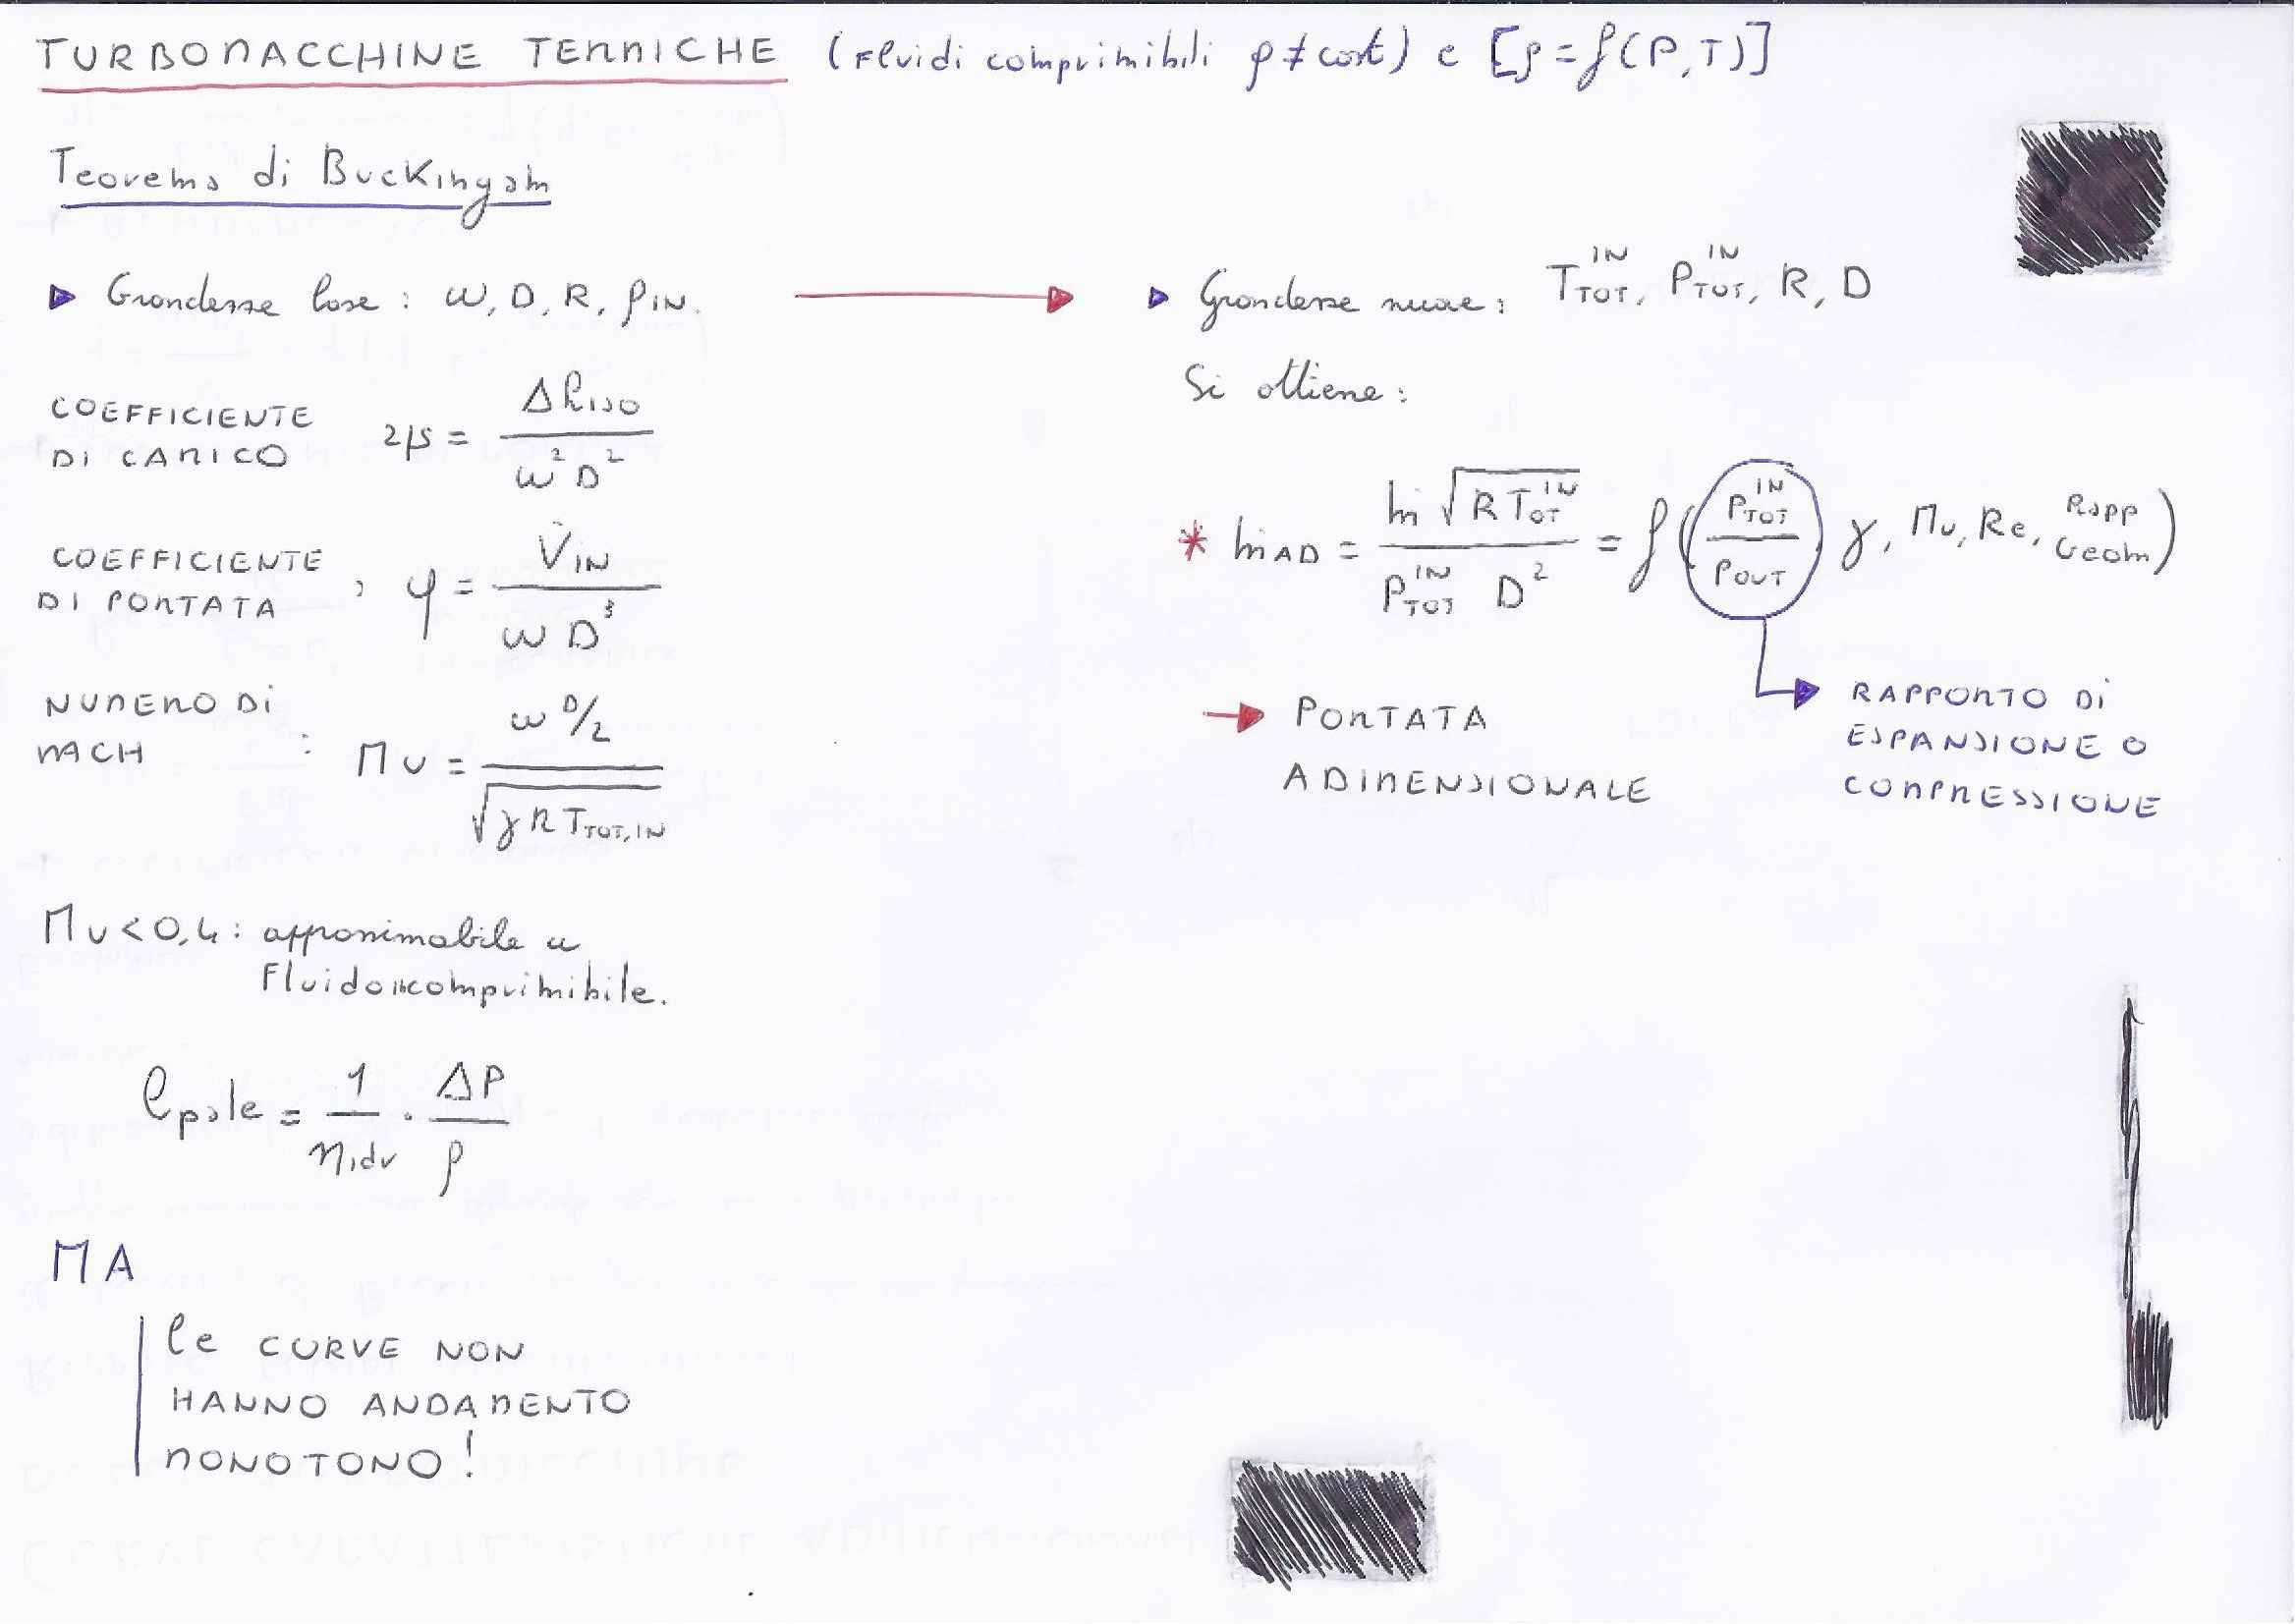 TURBOMACCHINE TERMICHE (Fluidi comprimibili ρ ≠ cost) e [ρ = f(P,T)]
Teorema di Buckingam
▶ Grandezze base: ω, D, R, ρIN.
COEFFICIENTE DI CARICO ψ = Δhiso / ω² D²
COEFFICIENTE DI PORTATA : φ = V̇IN / ω D³
NUMERO DI MACH : Mu = ω D/2 / √(γ R TTOT,IN)
Mu < 0,4 : approssimabile a
Fluido incomprimibile.
lpale = 1/ηidr · ΔP/ρ
MA
le CURVE NON
HANNO ANDAMENTO
MONOTONO!
▶ Grandezze nuove: TTOT^IN, PTOT^IN, R, D
Si ottiene:
* ṁAD = ṁ √(R TTOT^IN) / PTOT^IN D² = f(PTOT^IN / POUT γ, Mu, Re, Rapp Geom)
→ PORTATA
ADIMENSIONALE
RAPPORTO DI
ESPANSIONE O
COMPRESSIONE